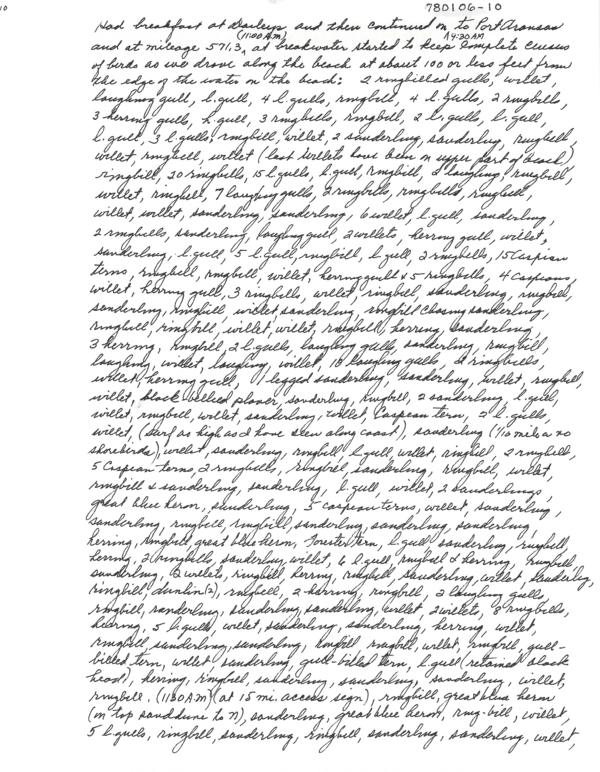 10
780106-10
Had breakfast at Darleys and then continued on to Port Aransas
(11:00 AM) 9:30 AM
and at mileage 571.3, at breakwater started to keep complete census
of birds as we drove along the beach at about 100 or less feet from
the edge of the water on the beach: 2 ringbilled gulls, willet,
laughing gull, l. gull, 4 l. gulls, ringbill, 4 l. gulls, 2 ringbills,
3 herring gulls, h. gull, 3 ringbills, ringbill, 2 l. gulls, l. gull,
l. gull, 3 l. gulls, ringbill, willet, 2 sanderling, sanderling, ringbill,
willet, ringbill, willet (last willets have been on upper part of beach)
ringbill, 20 ringbills, 15 l. gulls, l. gull, ringbill, laughing, ringbill,
willet, ringbill, 7 laughing gulls, 2 ringbills, ringbills, ringbill,
willet, willet, sanderling, sanderling, 6 willet, l. gull, sanderling,
2 ringbills, sanderling, laughing gull, 2 willets, herring gull, willet,
sanderling, l. gull, 5 l. gull, ringbill, l. gull, 2 ringbills, 15 Caspian
terns, ringbill, ringbill, willet, herring gull & 5 ringbills, 4 Caspians,
willet, herring gull, 3 ringbills, willet, ringbill, sanderling, ringbill,
sanderling, ringbill, willet, sanderling, ringbill chasing sanderling,
ringbill, ringbill, willet, willet, ringbill, herring, sanderling,
3 herring, ringbill, 2 l. gulls, laughing gulls, sanderling, ringbill,
laughing, willet, laughing, willet, 18 laughing gulls, 2 ringbills,
willet, herring gull, 1 legged sanderling, sanderling, willet, ringbill,
willet, black bellied plover, sanderling, ringbill, 2 sanderling, l. gull,
willet, ringbill, willet, sanderling, willet, Caspian tern, 2 l. gulls,
willet, (surf as high as I have seen along coast), sanderling (1/10 mile no
shorebirds), willet, sanderling, ringbill, l. gull, willet, ringbill, 2 ringbill,
5 Caspian terns, 2 ringbills, ringbill, sanderling, ringbill, willet,
ringbill & sanderling, sanderling, l. gull, willet, 2 sanderlings,
great blue heron, sanderling, 5 caspian terns, willet, sanderling,
sanderling, ringbill, ringbill, sanderling, sanderling, sanderling,
herring, ringbill, great blue heron, Forster tern, l. gull sanderling, ringbill,
herring, 2 ringbills, sanderling, willet, 6 l. gull, ringbill & herring, ringbill
sanderling, 2 willets, ringbill, herring, ringbill, sanderling, willet, sanderling,
ringbill, dunlin(2), ringbill, 2 herring, ringbill, 2 laughing gulls,
ringbill, sanderling, sanderling, sanderling, willet, 2 willets, 8 ringbills,
herring, 5 l. gulls, willet, sanderling, sanderling, herring, willet,
ringbill, sanderling, sanderling, ringbill, ringbill, willet, ringbill, gull-
billed tern, willet, sanderling, gull-billed tern, l. gull (retained black
head), herring, ringbill, sanderling, sanderling, sanderling, willet,
ringbill. (11:20 AM) (at 15 mi. access sign), ringbill, great blue heron
(on top sand dune to N), sanderling, great blue heron, ring-bill, willet,
5 l. gulls, ringbill, sanderling, ringbill, sanderling, sanderling, willet,